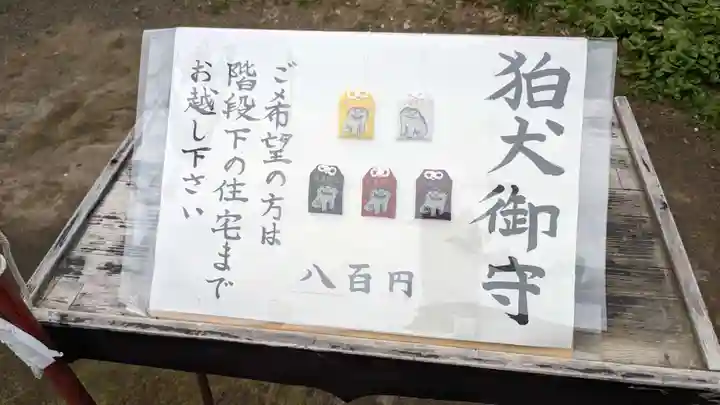 狛犬御守
八百円
ご希望の方は
階段下の住宅まで
お越し下さい